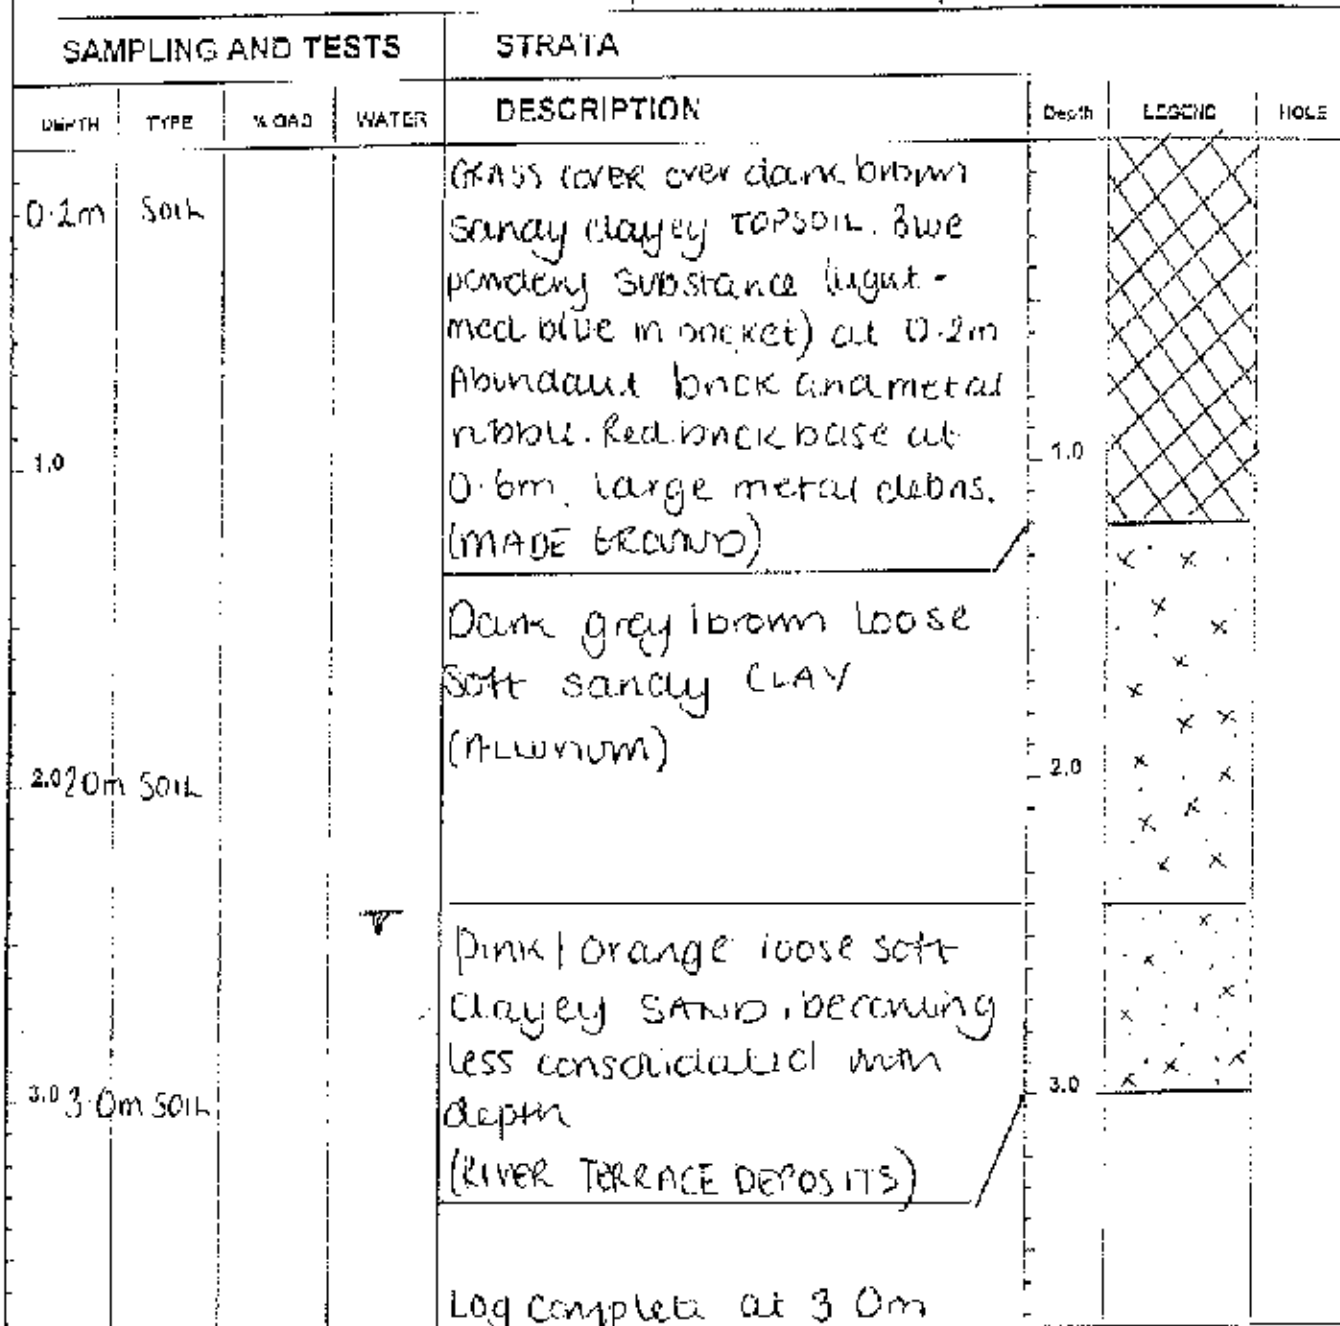 SAMPLING AND TESTS STRATA
DEPTH TYPE WATER DESCRIPTION Depth LEGEND HOLE
GRASS COVER over dark brown
0.2m SOIL sandy clayey TOPSOIL. Blue
powdery substance (light -
med blue in pocket) at 0.2m
Abundant brick and metal
rubble. Red brick base at
1.0 0.6m, large metal debris. 1.0
(MADE GROUND)
Dark grey/brown loose
soft sandy CLAY
(ALLUVIUM)
2.0 2.0m SOIL 2.0
Pink/orange loose soft
clayey SAND, becoming
less consolidated with
3.0 3.0m SOIL depth 3.0
(RIVER TERRACE DEPOSITS)
Log complete at 3.0m